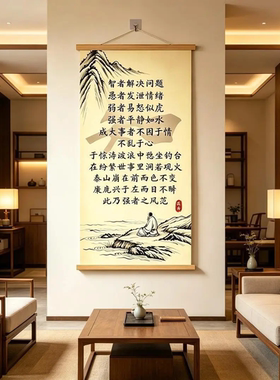 智者解决问题
愚者发泄情绪
弱者易怒似虎
强者平静如水
成大事者不困于情
不乱于心
于惊涛波浪中稳坐钓台
在纷繁世事里洞若观火
泰山崩在前而色不变
麋鹿兴于左而目不瞬
此乃强者之风范